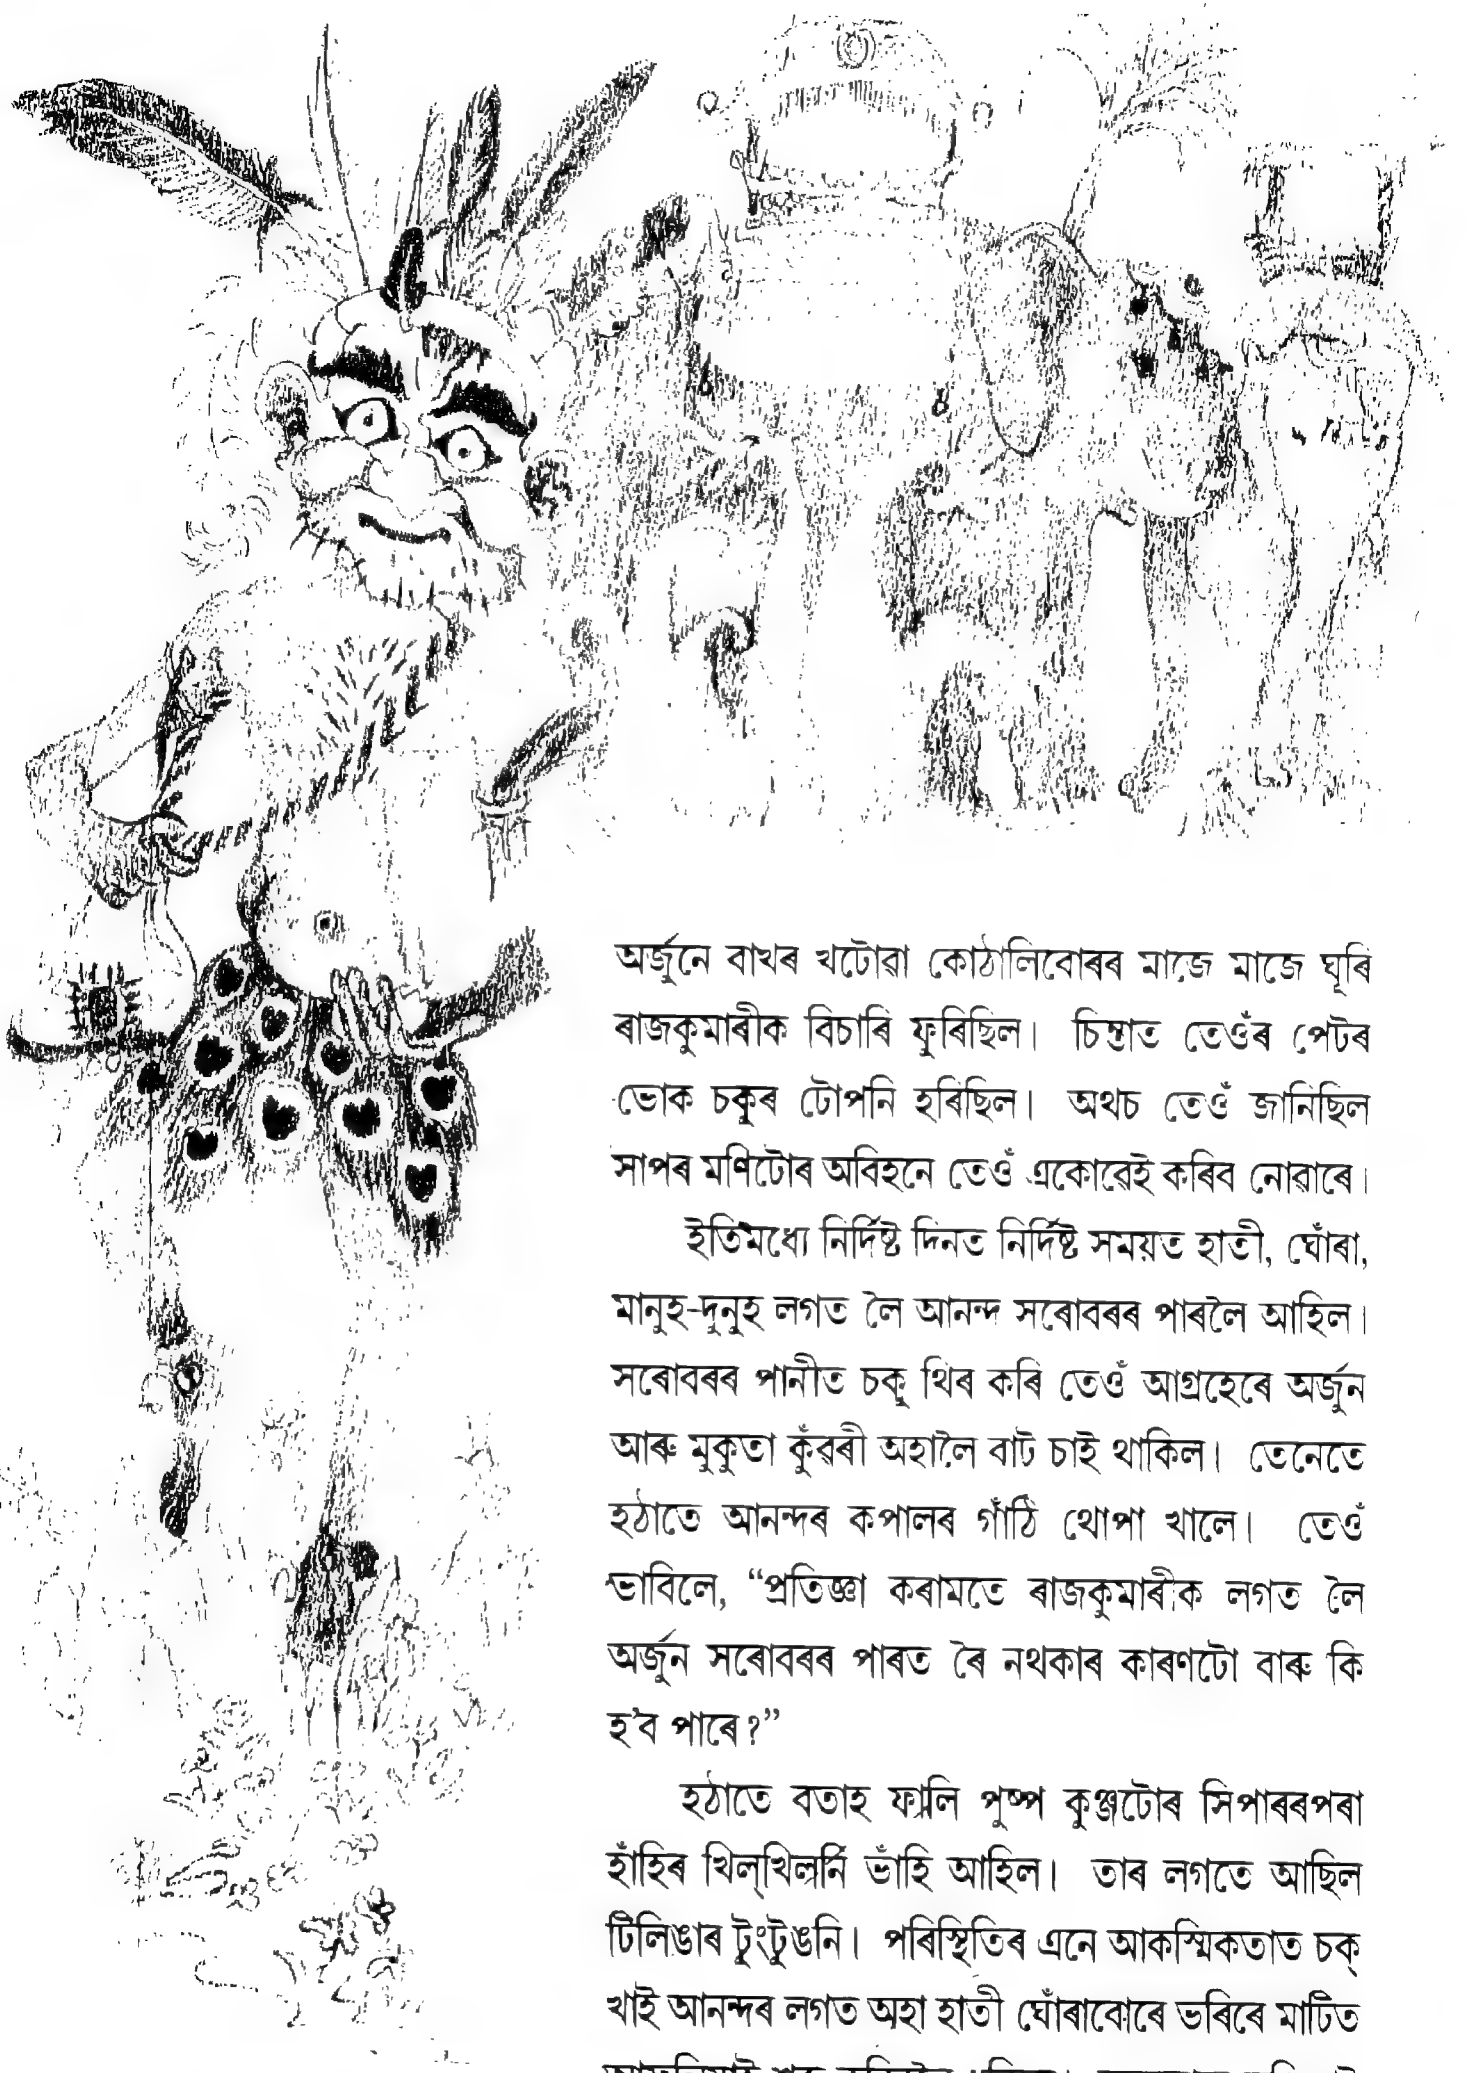 অৰ্জুনে বাখৰ খটোৱা কোঠালিবোৰৰ মাজে মাজে ঘূৰি
ৰাজকুমাৰীক বিচাৰি ফুৰিছিল। চিন্তাত তেওঁৰ পেটৰ
ভোক চকুৰ টোপনি হৰিছিল। অথচ তেওঁ জানিছিল
সাপৰ মণিটোৰ অবিহনে তেওঁ একোৱেই কৰিব নোৱাৰে।
ইতিমধ্যে নিৰ্দিষ্ট দিনত নিৰ্দিষ্ট সময়ত হাতী, ঘোঁৰা,
মানুহ-দুনুহ লগত লৈ আনন্দ সৰোবৰৰ পাৰলৈ আহিল।
সৰোবৰৰ পানীত চকু থিৰ কৰি তেওঁ আগ্ৰহেৰে অৰ্জুন
আৰু মুকুতা কুঁৱৰী অহালৈ বাট চাই থাকিল। তেনেতে
হঠাতে আনন্দৰ কপালৰ গাঁঠি থোপা খালে। তেওঁ
ভাবিলে, “প্ৰতিজ্ঞা কৰামতে ৰাজকুমাৰীক লগত লৈ
অৰ্জুন সৰোবৰৰ পাৰত ৰৈ নথকাৰ কাৰণটো বাৰু কি
হ’ব পাৰে?”
হঠাতে বতাহ ফালি পুষ্প কুঞ্জটোৰ সিপাৰৰপৰা
হাঁহিৰ খিল্‌খিলনি ভাঁহি আহিল। তাৰ লগতে আছিল
টিলিঙাৰ টুংটুঙনি। পৰিস্থিতিৰ এনে আকস্মিকতাত চক্
খাই আনন্দৰ লগত অহা হাতী ঘোঁৰাবোৰে ভৰিৰে মাটিত